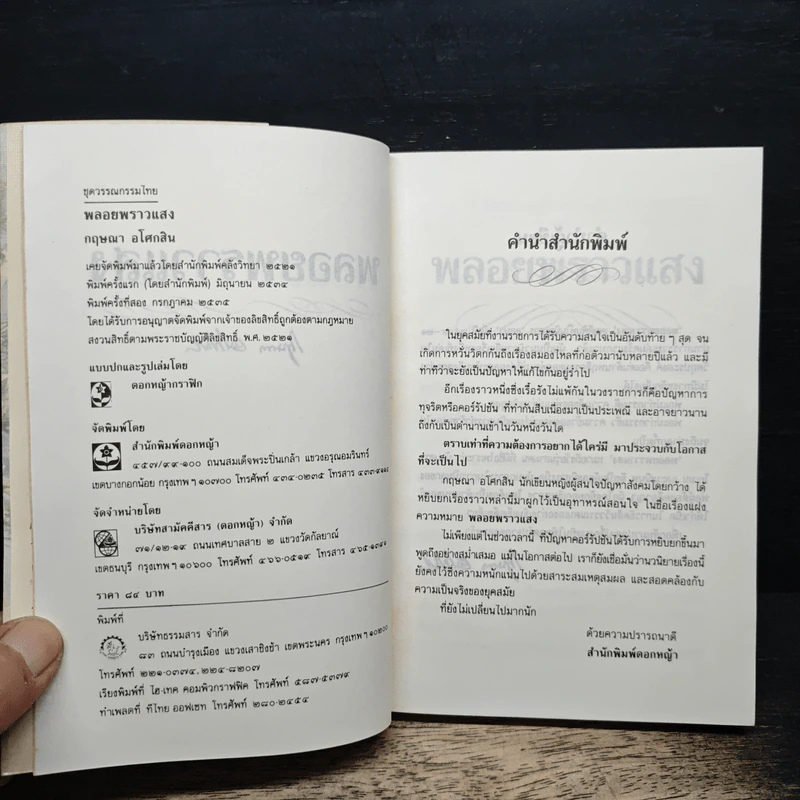 ชุดวรรณกรรมไทย
พลอยพราวแสง
กฤษณา อโศกสิน
เคยจัดพิมพ์มาแล้วโดยสำนักพิมพ์คลังวิทยา ๒๕๒๑
พิมพ์ครั้งแรก (โดยสำนักพิมพ์) มิถุนายน ๒๕๓๔
พิมพ์ครั้งที่สอง กรกฎาคม ๒๕๓๕
โดยได้รับการอนุญาตจัดพิมพ์จากเจ้าของลิขสิทธิ์ถูกต้องตามกฎหมาย
สงวนสิทธิ์ตามพระราชบัญญัติลิขสิทธิ์ พ.ศ. ๒๕๒๑
แบบปกและรูปเล่มโดย
ดอกหญ้ากราฟิก
จัดพิมพ์โดย
สำนักพิมพ์ดอกหญ้า
๔๕๗/๙๙-๑๐๐ ถนนสมเด็จพระปิ่นเกล้า แขวงอรุณอมรินทร์
เขตบางกอกน้อย กรุงเทพฯ ๑๐๗๐๐ โทรศัพท์ ๔๓๔-๐๒๓๕ โทรสาร
จัดจำหน่ายโดย
บริษัทสามัคคีสาร (ดอกหญ้า) จำกัด
๗๑/๑๒-๑๙ ถนนเทศบาลสาย ๒ แขวงวัดกัลยาณ์
เขตธนบุรี กรุงเทพฯ ๑๐๖๐๐ โทรศัพท์ ๔๖๖-๐๕๑๙ โทรสาร
ราคา ๘๔ บาท
พิมพ์ที่
บริษัทธรรมสาร จำกัด
๘๓ ถนนบำรุงเมือง แขวงเสาชิงช้า เขตพระนคร กรุงเทพฯ ๑๐๒๐๐
โทรศัพท์ ๒๒๑-๐๓๗๔, ๒๒๔-๘๒๐๗
เรียงพิมพ์ที่ ไฮ-เทค คอมพิวกราฟฟิค โทรศัพท์ ๕๘๗-๕๓๗๙
ทำเพลตที่ ทีไทย ออฟเซท โทรศัพท์ ๒๘๐-๒๔๕๔
คำนำสำนักพิมพ์
ในยุคสมัยที่งานราชการได้รับความสนใจเป็นอันดับท้าย ๆ สุด จน
เกิดการหวั่นวิตกกันถึงเรื่องสมองไหลที่ก่อตัวมานับหลายปีแล้ว และมี
ท่าทีว่าจะยังเป็นปัญหาให้แก้ไขกันอยู่ร่ำไป
อีกเรื่องราวหนึ่งซึ่งเรื้อรังไม่แพ้กันในวงราชการก็คือปัญหาการ
ทุจริตหรือคอร์รัปชัน ที่ทำกันสืบเนื่องมาเป็นประเพณี และอาจยาวนาน
ถึงกับเป็นตำนานเข้าในวันหนึ่งวันใด
ตราบเท่าที่ความต้องการอยากได้ใคร่มี มาประจวบกับโอกาส
ที่จะเป็นไป
กฤษณา อโศกสิน นักเขียนหญิงผู้สนใจปัญหาสังคมโดยกว้าง ได้
หยิบยกเรื่องราวเหล่านี้มาผูกไว้เป็นอุทาหรณ์สอนใจ ในชื่อเรื่องแฝง
ความหมาย พลอยพราวแสง
ไม่เพียงแต่ในช่วงเวลานี้ ที่ปัญหาคอร์รัปชันได้รับการหยิบยกขึ้นมา
พูดถึงอย่างสม่ำเสมอ แม้ในโอกาสต่อไป เราก็ยังเชื่อมั่นว่านวนิยายเรื่องนี้
ยังคงไว้ซึ่งความหนักแน่นไปด้วยสาระสมเหตุสมผล และสอดคล้องกับ
ความเป็นจริงของยุคสมัย
ที่ยังไม่เปลี่ยนไปมากนัก
ด้วยความปรารถนาดี
สำนักพิมพ์ดอกหญ้า